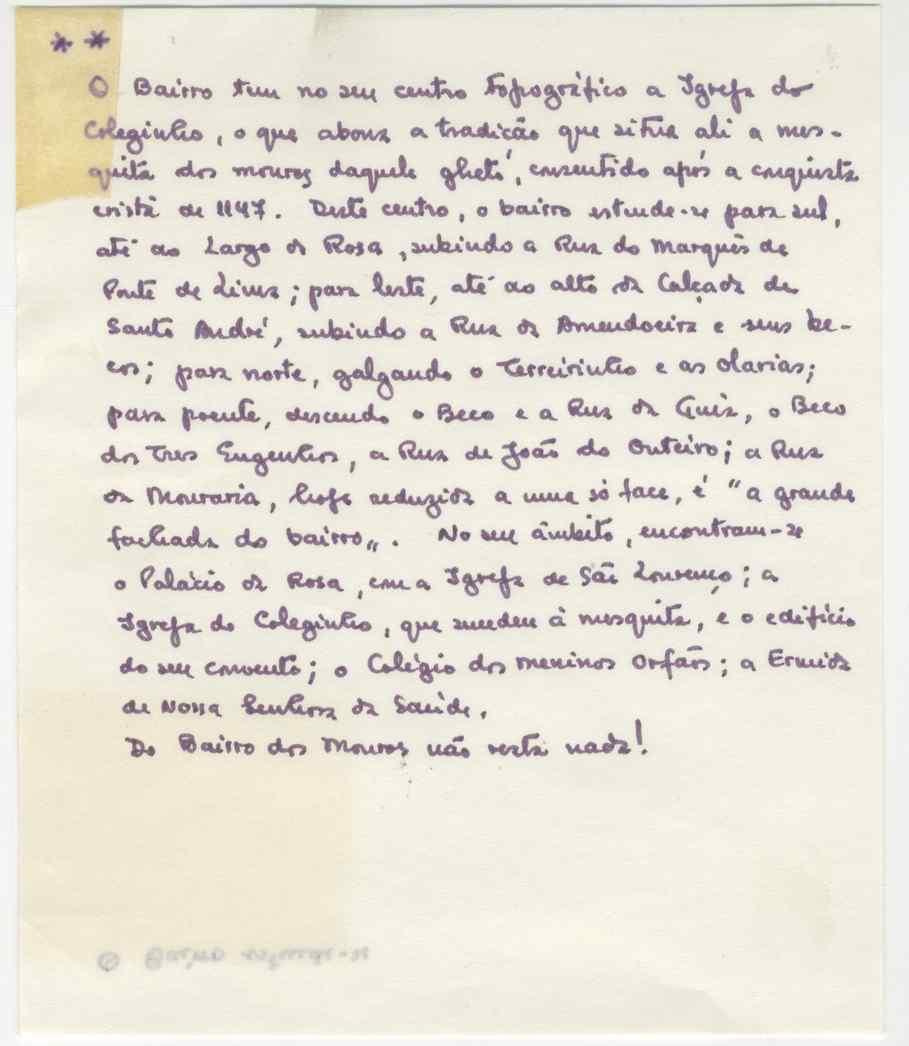 **
O Bairro tem no seu centro topográfico a Igreja do
Coleginho, o que abona a tradição que situa ali a mes-
quita dos mouros daquele ghetó, consentido após a conquista
cristã de 1147. Deste centro, o bairro estende-se para sul,
até ao Largo da Rosa, subindo a Rua do Marquês de
Ponte de Lima; para leste, até ao alto da Calçada de
Santo André, subindo a Rua da Amendoeira e seus be-
cos; para norte, galgando o Terreirinho e as Olarias;
para poente, descendo o Beco e a Rua da Guia, o Beco
dos Tres Engenhos, a Rua de João do Outeiro; a Rua
da Mouraria, hoje reduzida a uma só face, é "a grande
fachada do bairro„. No seu âmbito, encontram-se
o Palácio da Rosa, com a Igreja de São Lourenço; a
Igreja do Coleginho, que sucedeu à mesquita, e o edifício
do seu convento; o Colégio dos meninos Orfãos; a Ermida
de Nossa Senhora da Saúde.
Do Bairro dos Mouros não resta nada!
O Bairro